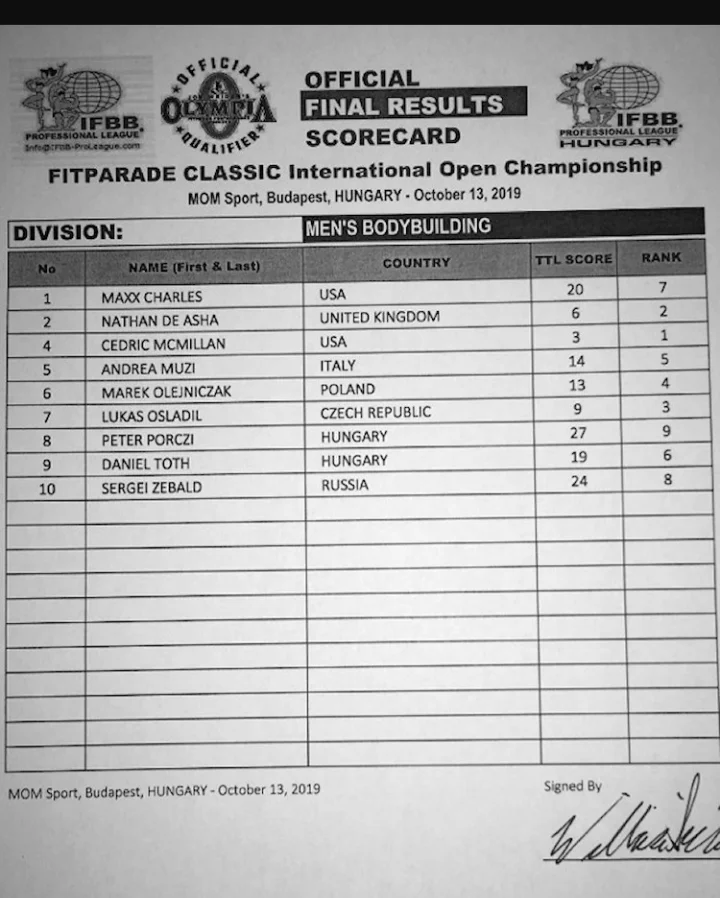 IFBB
PROFESSIONAL LEAGUE
Info@IFBB-ProLeague.com
OFFICIAL
OLYMPIA
QUALIFIER
OFFICIAL
FINAL RESULTS
SCORECARD
IFBB
PROFESSIONAL LEAGUE
HUNGARY
FITPARADE CLASSIC International Open Championship
MOM Sport, Budapest, HUNGARY - October 13, 2019
DIVISION: MEN'S BODYBUILDING
No NAME (First & Last) COUNTRY TTL SCORE RANK
1 MAXX CHARLES USA 20 7
2 NATHAN DE ASHA UNITED KINGDOM 6 2
4 CEDRIC MCMILLAN USA 3 1
5 ANDREA MUZI ITALY 14 5
6 MAREK OLEJNICZAK POLAND 13 4
7 LUKAS OSLADIL CZECH REPUBLIC 9 3
8 PETER PORCZI HUNGARY 27 9
9 DANIEL TOTH HUNGARY 19 6
10 SERGEI ZEBALD RUSSIA 24 8
MOM Sport, Budapest, HUNGARY - October 13, 2019
Signed By